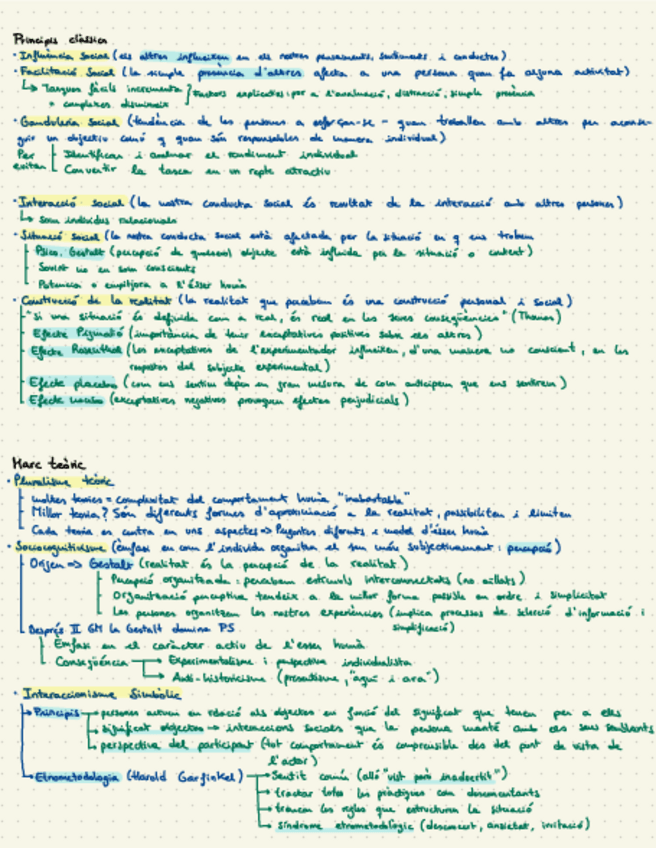 Principis clàssics
· Influència Social (els altres influeixen en els nostres pensaments, sentiments i conductes)
· Facilitació Social (la simple presència d'altres afecta a una persona quan fa alguna activitat)
↳ Tasques fàcils incrementa } Factors explicatius: por a l'avaluació, distracció, simple presència
" complexes disminueix
· Ganduleria Social (tendència de les persones a esforçar-se - quan treballen amb altres per aconse-
guir un objectiu comú q quan són responsables de manera individual)
Per evitar Identificar i avaluar el rendiment individual
Convertir la tasca en un repte atractiu
· Interacció social (la nostra conducta social és resultat de la interacció amb altres persones)
↳ som individus relacionals
· Situació social (la nostra conducta social està afectada per la situació en q ens trobem
Psico. Gestalt (percepció de qualsevol objecte està influïda per la situació o context)
Sovint no en som conscients
Potencia o empitjora a l'ésser humà
· Construcció de la realitat (la realitat que percebem és una construcció personal i social)
"Si una situació és definida com a real, és real en les seves conseqüències" (Thomas)
Efecte Pigmalió (importància de tenir expectatives positives sobre els altres)
Efecte Rosenthal (les expectatives de l'experimentador influeixen, d'una manera no conscient, en les
respostes del subjecte experimental)
Efecte placebo (com ens sentim depèn en gran mesura de com anticipem que ens sentirem)
Efecte nocebo (expectatives negatives provoquen efectes perjudicials)
Marc teòric
· Pluralisme teòric
moltes teories = complexitat del comportament humà "inabastable"
Millor teoria? Són diferents formes d'aproximació a la realitat, possibiliten i limiten
Cada teoria es centra en uns aspectes => Preguntes diferents i model d'ésser humà
· Sociocognitivisme (èmfasi en com l'individu organitza el seu món subjectivament: percepció)
Origen => Gestalt (realitat és la percepció de la realitat)
Percepció organitzada: percebem estímuls interconnectats (no aïllats)
Organització perceptiva tendeix a la millor forma possible en ordre i simplicitat
Les persones organitzem les nostres experiències (implica processos de selecció d'informació i
simplificació)
Després II GM la Gestalt domina PS
Èmfasi en el caràcter actiu de l'ésser humà
Conseqüència → Experimentalisme i perspectiva individualista
→ Anti-historicisme (presentisme, "aquí i ara")
· Interaccionisme Simbòlic
Principis → persones actuen en relació als objectes en funció del significat que tenen per a ells
→ significat objectes → interaccions socials que la persona manté amb els seus semblants
→ perspectiva del participant (tot comportament és comprensible des del punt de vista de
l'actor)
Etnometodologia (Harold Garfinkel) → Sentit comú (allò "vist però inadvertit")
→ tractar totes les pràctiques com desconcertants
→ trencar les regles que estructuren la situació
→ síndrome etnometodològic (desconcert, ansietat, irritació)